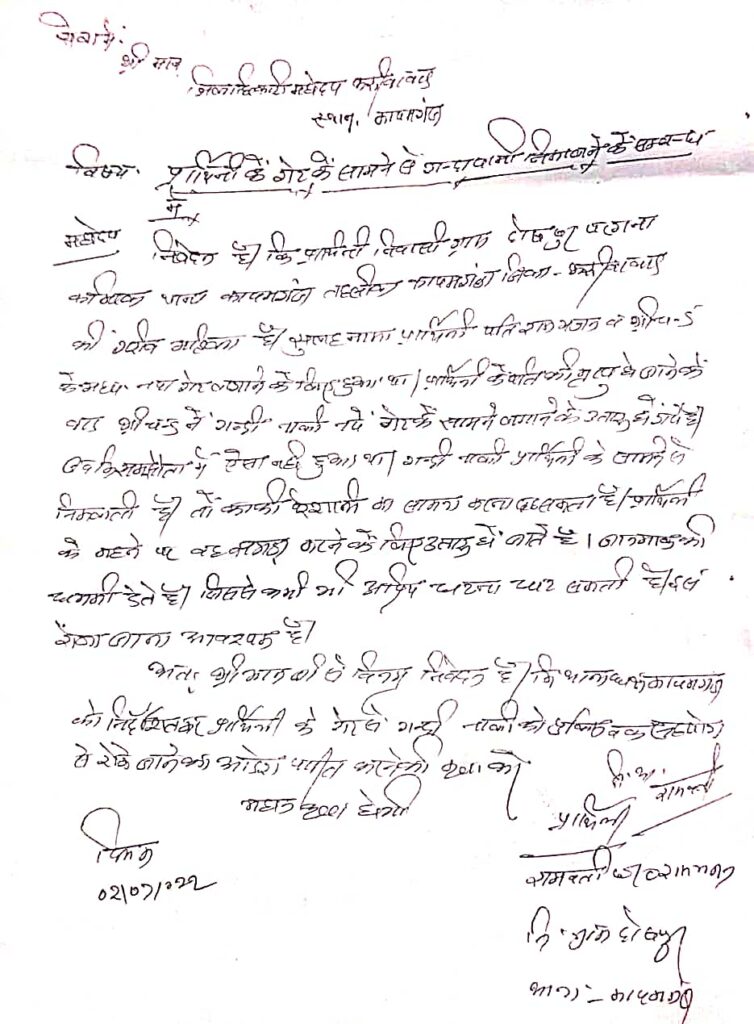 सेवामें:
श्री मान
जिलाधिकारी महोदय फर्रुखाबाद
स्थान. कायमगंज
विषय- प्रार्थिनी के गेट के सामने से गन्दा पानी निकालने के सम्बन्ध
में
महोदय निवेदन है। कि प्रार्थिनी निवासी ग्राम परगना
कम्पिल थाना कायमगंज तहसील कायमगंज जिला- फर्रुखाबाद
की गरीब महिला है। सुलहनामा प्रार्थिनी पति रामभजन व श्रीचन्द
के मध्य नया गेट लगाने के लिए हुआ था। प्रार्थिनी के पति की मृत्यु हो जाने के
बाद श्रीचन्द ने गन्दी नाली नये गेट के सामने बनाने के उतारू हो गये है।
जबकि समझौता में ऐसा नही हुआ था। गन्दी नाली प्रार्थिनी के सामने से
निकलती है। तो काफी परेशानी का सामना करना पड़ सकता है। प्रार्थिनी
के कहने पर वह झगड़ा करने के लिए उतारू हो जाते है। जानमाल की
धमकी देते है। जिससे कभी भी अप्रिय घटना घट सकती है।
रोका जाना आवश्यक है।
अतः श्रीमान जी से विनम्र निवेदन है। कि थानाध्यक्ष कायमगंज
को निर्देशित कर प्रार्थिनी के गेट से गन्दी नाली को
से रोके जाने का आदेश पारित करने की कृपा करें
महान कृपा होगी
नि. अ. रामवती
प्रार्थिनी
दिनांक
02/07/2022
रामवती रामभजन
नि- ग्राम
थाना - कायमगंज